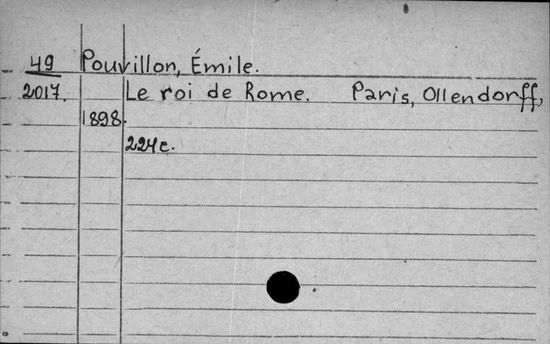 49 Pouvillon, Émile.
2017. Le roi de Rome. Paris, Ollendorff,
1898.
224 c.